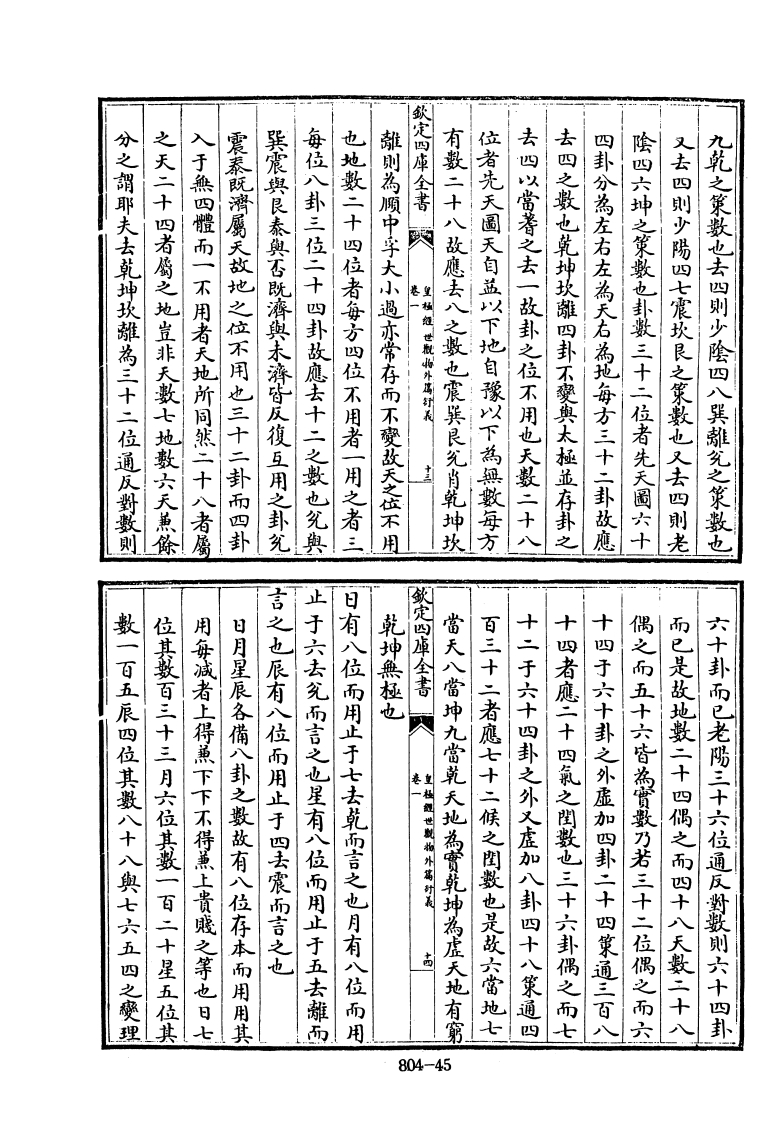 九乾之策數也去四則少陰四八巽離兌之策數也
又去四則少陽四七震坎艮之策數也又去四則老
陰四六坤之策數也卦數三十二位者先天圖六十
四卦分為左右左為天右為地每方三十二卦故應
去四之數也乾坤坎離四卦不變與太極並存卦之
去四以當蓍之去一故卦之位不用也天數二十八
位者先天圖天自益以下地自豫以下為無數每方
有數二十八故應去八之數也震巽艮兌肖乾坤坎
欽定四庫全書
皇極經世觀物外篇衍義
卷一
十三
離則為頤中孚大小過亦常存而不變故天之位不用
也地數二十四位者每方四位不用者一用之者三
每位八卦三位二十四卦故應去十二之數也兌與
巽震與艮泰與否既濟與未濟皆反復互用之卦兌
震泰既濟屬天故地之位不用也三十二卦而四卦
入于無四體而一不用者天地所同然二十八者屬
之天二十四者屬之地豈非天數七地數六天兼餘
分之謂耶夫去乾坤坎離為三十二位通反對數則
六十卦而已老陽三十六位通反對數則六十四卦
而已是故地數二十四偶之而四十八天數二十八
偶之而五十六皆為實數乃若三十二位偶之而六
十四于六十卦之外虛加四卦二十四策通三百八
十四者應二十四氣之閏數也三十六卦偶之而七
十二于六十四卦之外又虛加八卦四十八策通四
百三十二者應七十二候之閏數也是故六當地七
當天八當坤九當乾天地為實乾坤為虛天地有窮
欽定四庫全書
皇極經世觀物外篇衍義
卷一
十四
乾坤無極也
日有八位而用止于七去乾而言之也月有八位而用
止于六去兌而言之也星有八位而用止于五去離而
言之也辰有八位而用止于四去震而言之也
日月星辰各備八卦之數故有八位存本而用用其
用每減者上得兼下下不得兼上貴賤之等也日七
位其數百三十三月六位其數一百二十星五位其
數一百五辰四位其數八十八與七六五四之變理
804-45